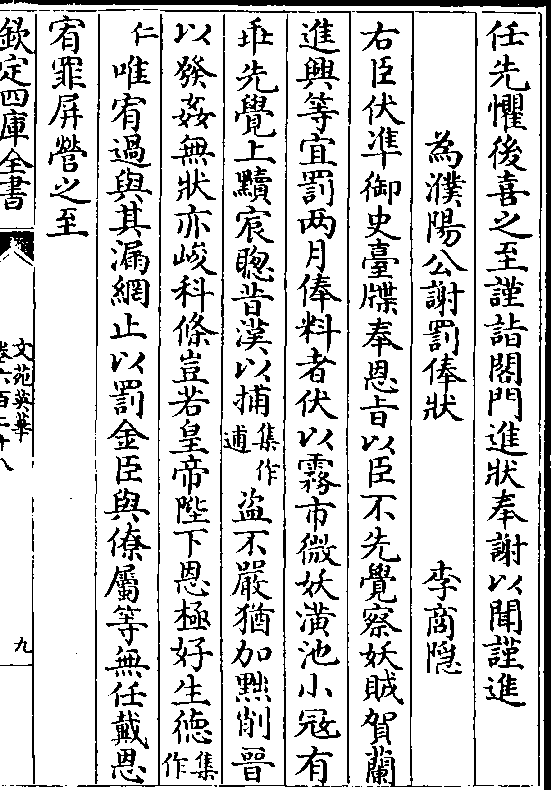 任先懼後喜之至謹詣閤門進狀奉謝以聞謹進
為濮陽公謝罰俸狀 李商隱
右臣伏準御史臺牒奉恩旨以臣不先覺察妖賊賀蘭
進興等宜罰两月俸料者伏以霧市微妖潢池小冦有
乖先覺上黷宸聰昔漢以捕集作逋盗不嚴猶加黜削晉
以發姦無狀亦峻科條豈若皇帝陛下恩極好生德集作
仁唯宥過與其漏網止以罰金臣與僚屬等無任戴恩
宥罪屏營之至
欽定四庫全書
文苑英華
卷六百二十八
九